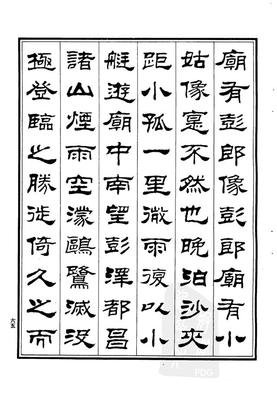 廟有彭郎像彭郎廟有小
姑像寔不然也晚泊沙夾
距小孤一里微雨復以小
艇遊廟中南望彭澤都昌
諸山煙雨空濛鷗鷺滅没
極登臨之勝徙倚久之而
六五
PDG